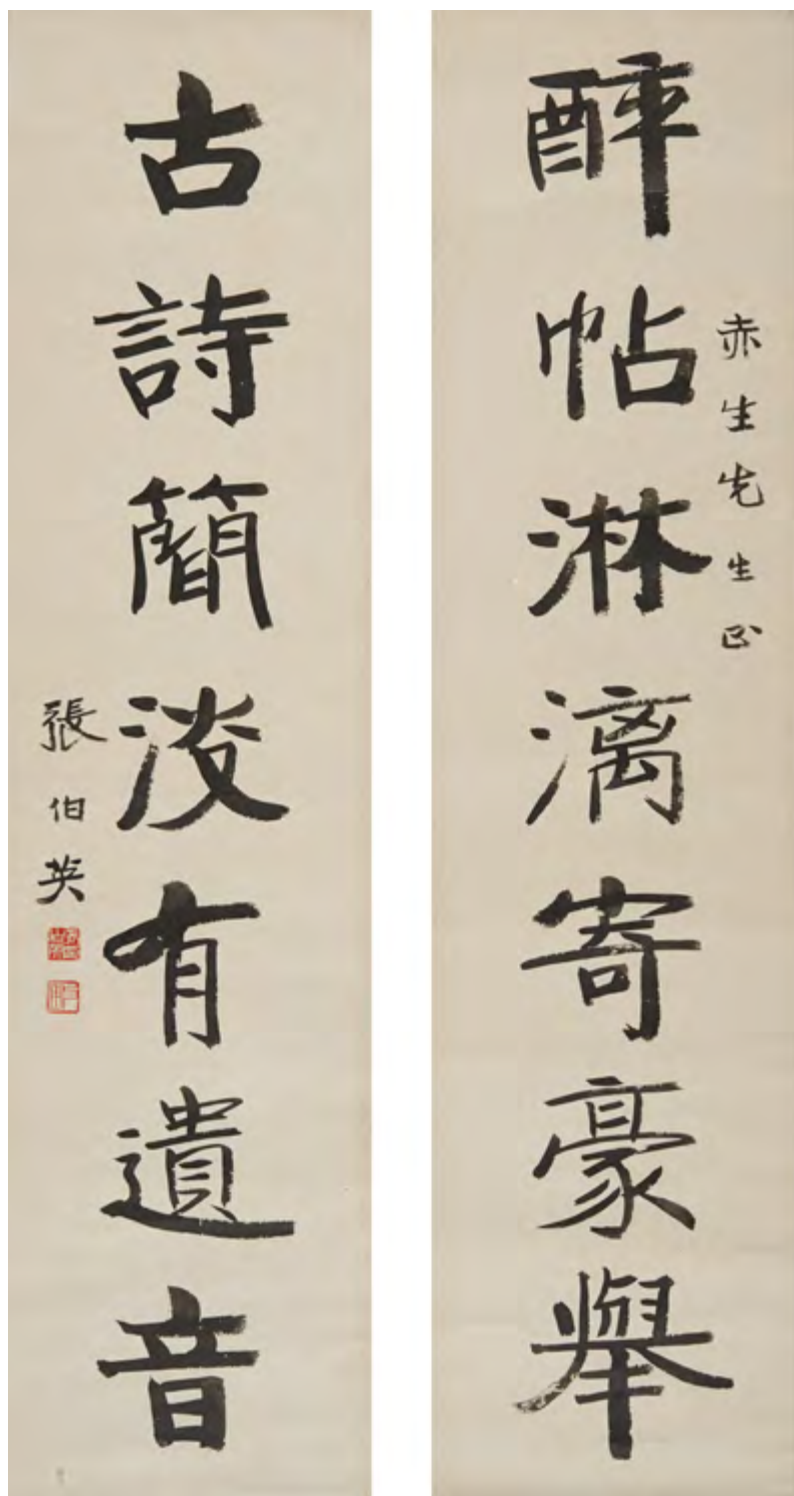 醉帖淋漓寄豪舉
赤生先生正
古詩簡淡有遺音
張伯英